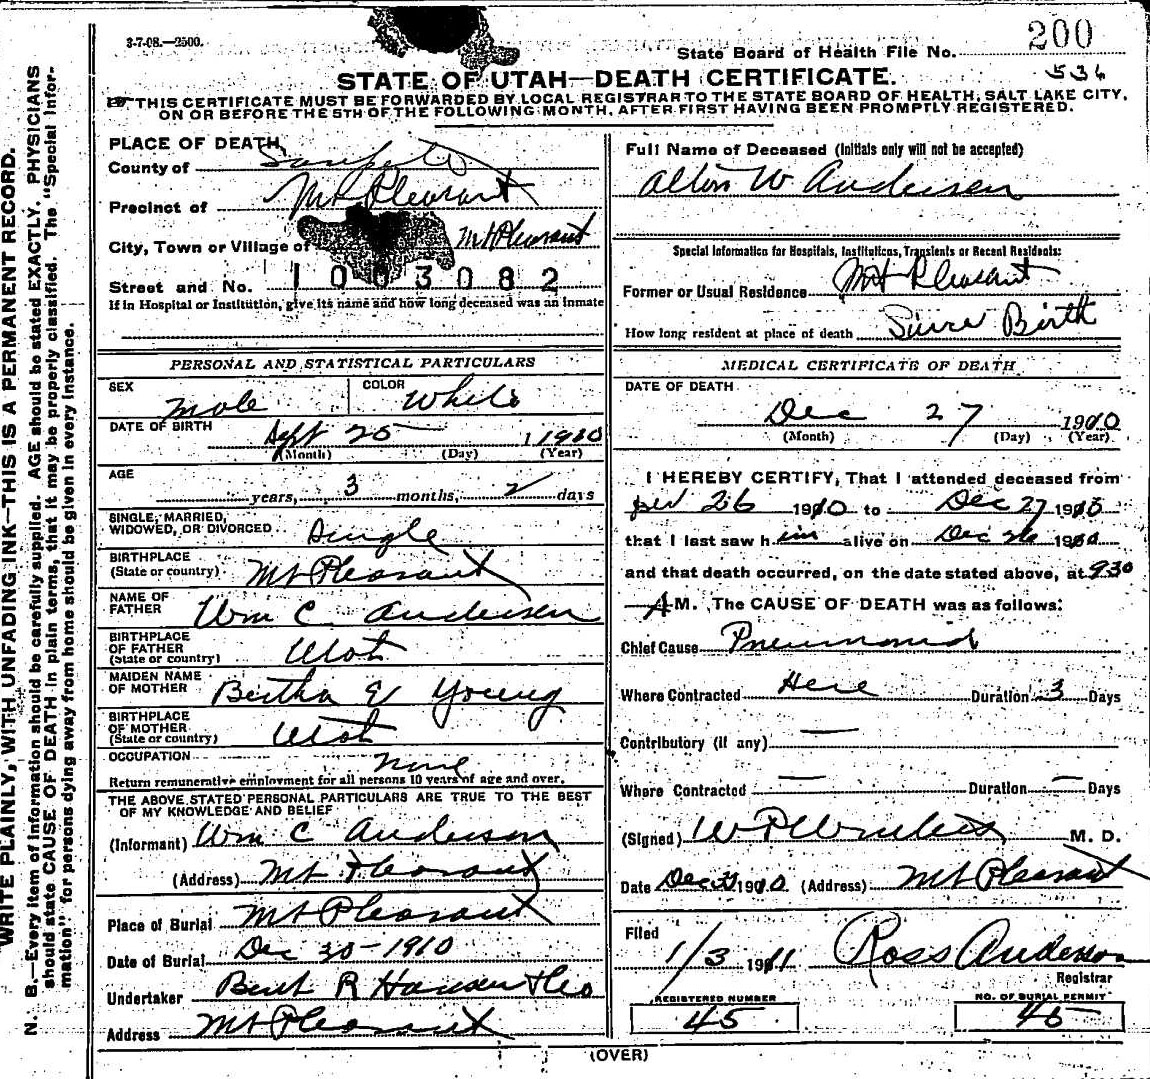 3-7-08.—2500.
State Board of Health File No. 200
536
STATE OF UTAH—DEATH CERTIFICATE.
THIS CERTIFICATE MUST BE FORWARDED BY LOCAL REGISTRAR TO THE STATE BOARD OF HEALTH, SALT LAKE CITY,
ON OR BEFORE THE 5TH OF THE FOLLOWING MONTH, AFTER FIRST HAVING BEEN PROMPTLY REGISTERED.
WRITE PLAINLY, WITH UNFADING INK—THIS IS A PERMANENT RECORD.
N. B.—Every item of information should be carefully supplied. AGE should be stated EXACTLY. PHYSICIANS
should state CAUSE OF DEATH in plain terms, that it may be properly classified. The "Special Infor-
mation" for persons dying away from home should be given in every instance.
PLACE OF DEATH
County of Sanpete
Precinct of Mt Pleasant
City, Town or Village of Mt Pleasant
Street and No. 1003082
If in Hospital or Institution, give its name and how long deceased was an inmate
PERSONAL AND STATISTICAL PARTICULARS
SEX Male COLOR White
DATE OF BIRTH Sept 25 1910
(Month) (Day) (Year)
AGE
years, 3 months, 2 days
SINGLE, MARRIED,
WIDOWED, OR DIVORCED Single
BIRTHPLACE
(State or country) Mt Pleasant
NAME OF
FATHER Wm C Andersen
BIRTHPLACE
OF FATHER
(State or country) Utah
MAIDEN NAME
OF MOTHER Bertha E Young
BIRTHPLACE
OF MOTHER
(State or country) Utah
OCCUPATION None
Return remunerative employment for all persons 10 years of age and over.
THE ABOVE STATED PERSONAL PARTICULARS ARE TRUE TO THE BEST
OF MY KNOWLEDGE AND BELIEF
(Informant) Wm C Anderson
(Address) Mt Pleasant
Place of Burial Mt Pleasant
Date of Burial Dec 30-1910
Undertaker Bent R Hansen &Co
Address Mt Pleasant
Full Name of Deceased (Initials only will not be accepted)
Alton W Andersen
Special Information for Hospitals, Institutions, Transients or Recent Residents:
Former or Usual Residence Mt Pleasant
How long resident at place of death Since Birth
MEDICAL CERTIFICATE OF DEATH
DATE OF DEATH
Dec 27 1910
(Month) (Day) (Year)
I HEREBY CERTIFY, That I attended deceased from
26 1910 to Dec 27 1910
that I last saw him alive on Dec 26 1910
and that death occurred, on the date stated above, at 930
A M. The CAUSE OF DEATH was as follows:
Chief Cause Pneumonia
Where Contracted Here Duration 3 Days
Contributory (if any) —
Where Contracted — Duration — Days
(Signed) M. D.
Date Dec 1910 (Address) Mt Pleasant
Filed
1/3 1911 Ross Anderson
Registrar
REGISTERED NUMBER NO. OF BURIAL PERMIT
45 45
(OVER)